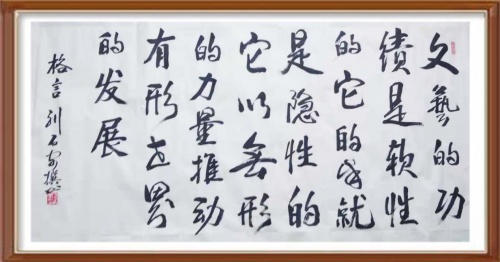 文艺的功
绩是软性
的它的成就
是隐性的
它以无形
的力量推动
有形世界
的发展
格言